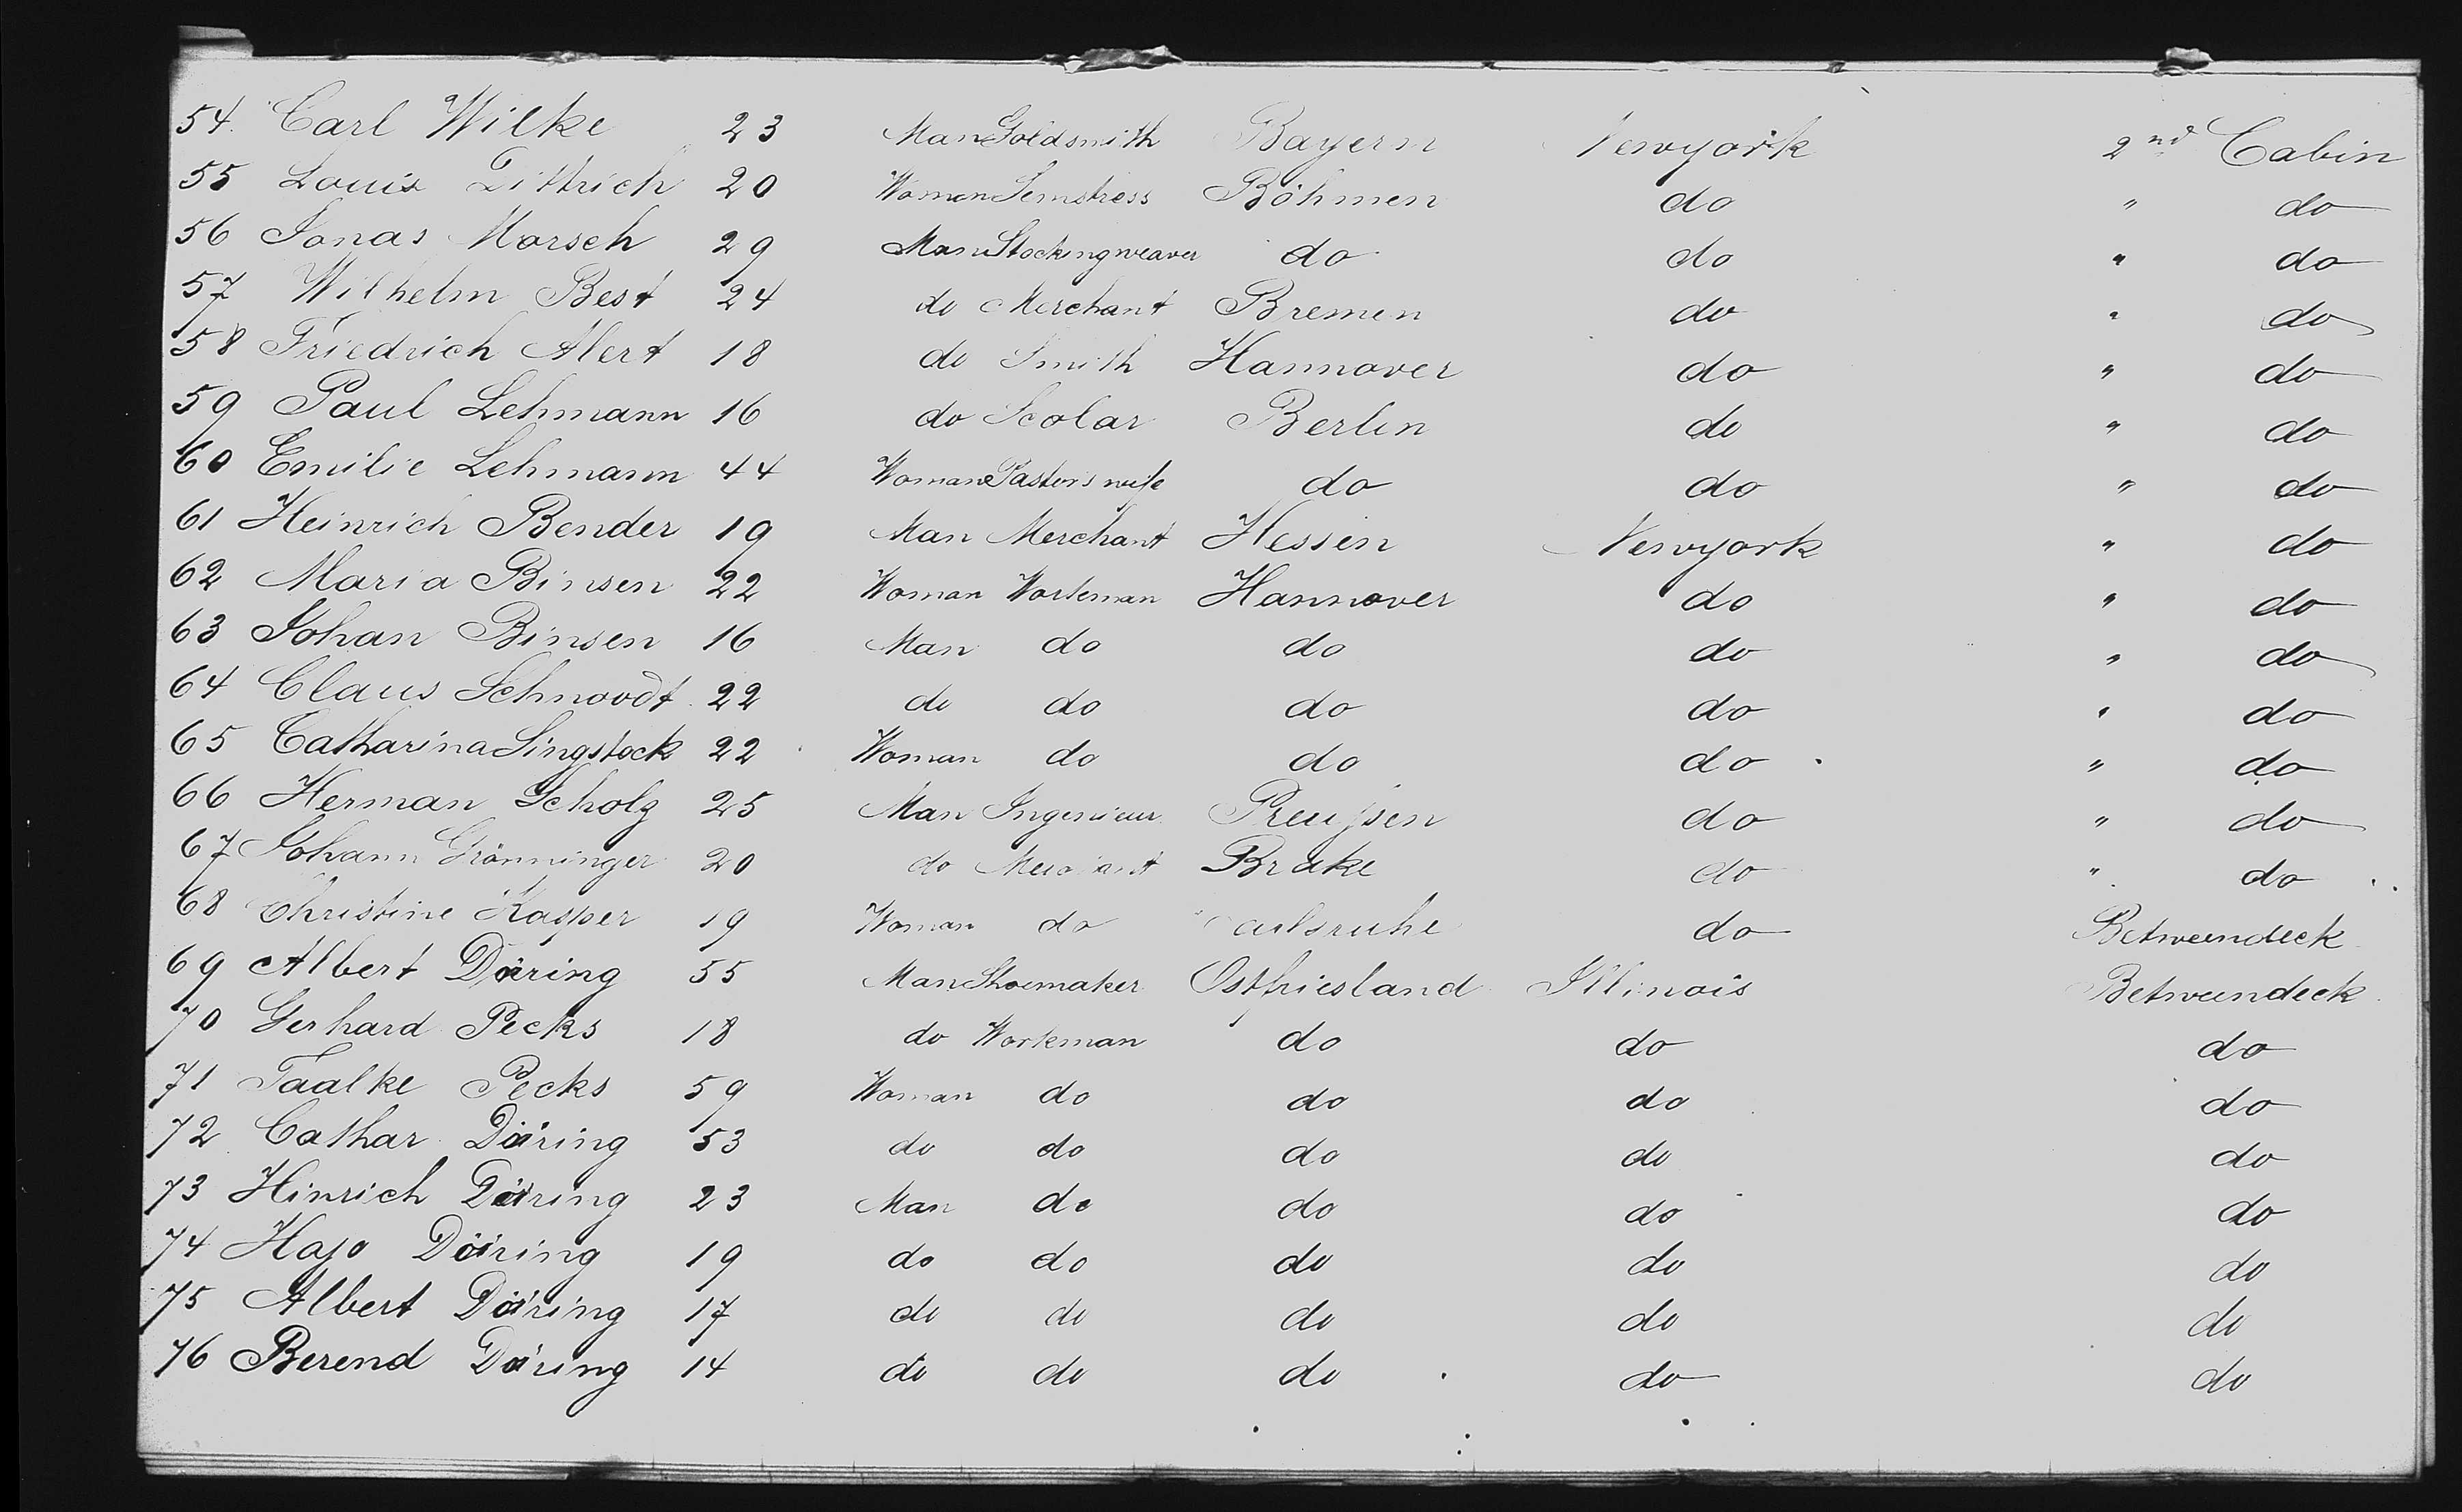 54. Carl Wilke 23 Man Goldsmith Bayern Newyork 2nd Cabin
55 Louis Dittrich 20 Woman Semstress Böhmen do " do
56 Jonas Morsch 29 Man Stockingweaver do do " do
57 Wilhelm Best 24 do Merchant Bremen do " do
58 Friedrich Alert 18 do Smith Hannover do " do
59 Paul Lehmann 16 do Scolar Berlin do " do
60 Emilie Lehmann 44 Woman Pastors wife do do " do
61 Heinrich Bender 19 Man Merchant Hessen Newyork " do
62 Maria Binsen 22 Woman Workman Hannover do " do
63 Johan Binsen 16 Man do do do " do
64 Claus Schnoodt 22 do do do do " do
65 Catharina Singstock 22 Woman do do do " do
66 Herman Scholz 25 Man Ingenieur Preussen do " do
67 Johann Grönninger 20 do Merchant Brake do " do
68 Christine Kasper 19 Woman do Carlsruhe do Betweendeck
69 Albert Döring 55 Man Shoemaker Ostfriesland Illinois Betweendeck
70 Gerhard Pecks 18 do Workman do do do
71 Taalke Pecks 59 Woman do do do do
72 Cathar Döring 53 do do do do do
73 Hinrich Döring 23 Man do do do do
74 Hajo Döring 19 do do do do do
75 Albert Döring 17 do do do do do
76 Berend Döring 14 do do do do do